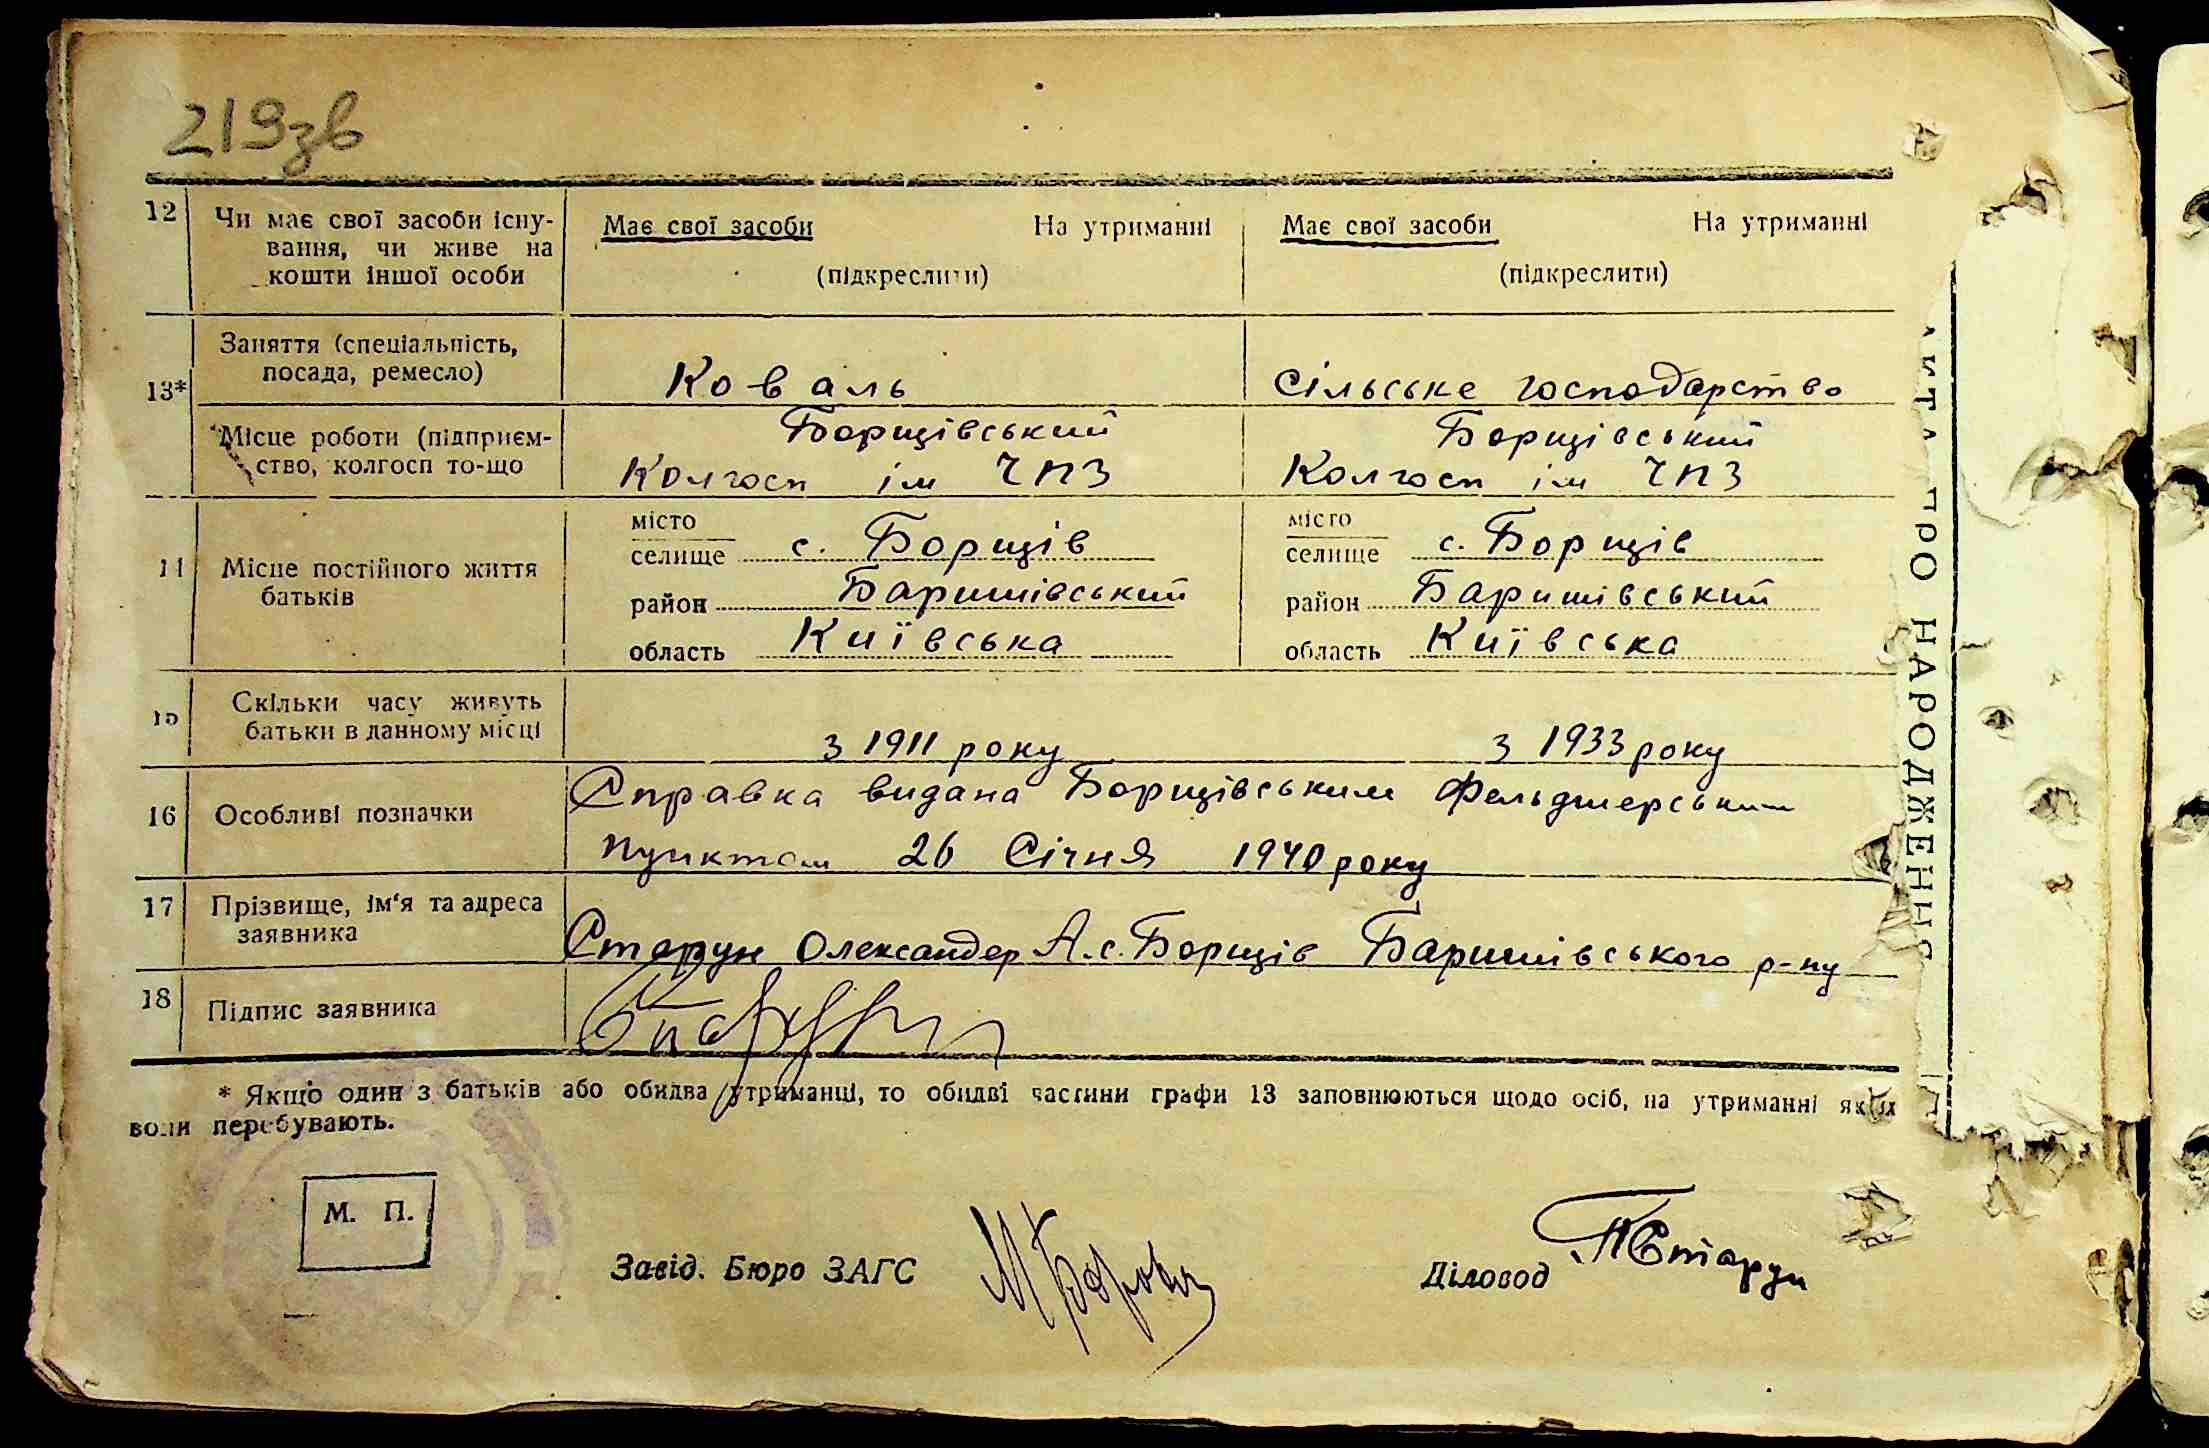 219зв
12 Чи має свої засоби існу-
вання, чи живе на
кошти іншої особи
Має свої засоби На утриманні
(підкреслити)
Має свої засоби На утриманні
(підкреслити)
13*
Заняття (спеціальність,
посада, ремесло)
Коваль
Сільське господарство
Місце роботи (підприєм-
ство, колгосп то-що
Борщівський
Колгосп ім ЧПЗ
Борщівський
Колгосп ім ЧПЗ
14 Місце постійного життя
батьків
місто
селище с. Борщів
район Баришівський
область Київська
місто
селище с. Борщів
район Баришівський
область Київська
15 Скільки часу живуть
батьки в данному місці
з 1911 року
з 1933 року
16 Особливі позначки
Справка видана Борщівським Фельдшерським
пунктом 26 Січня 1940 року
17 Прізвище, ім'я та адреса
заявника
Старун Олександер А. с. Борщів Баришівського р-ну
18 Підпис заявника
* Якщо один з батьків або обидва утриманці, то обидві частини графи 13 заповнюються щодо осіб, на утриманні яких
воли перебувають.
М. П.
Завід. Бюро ЗАГС
Діловод Старун
ПРО НАРОДЖЕНН